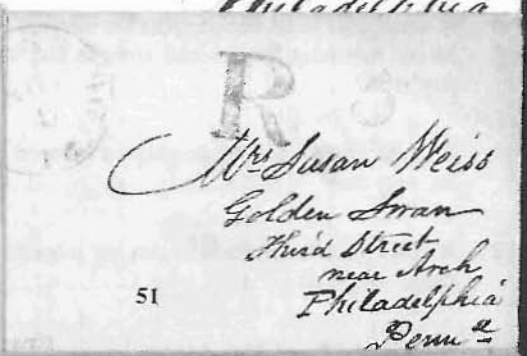 Philadelphia
R 5
Mrs Susan Weiss
Golden Swan
Third Street
near Arch
51
Philadelphia
Penna